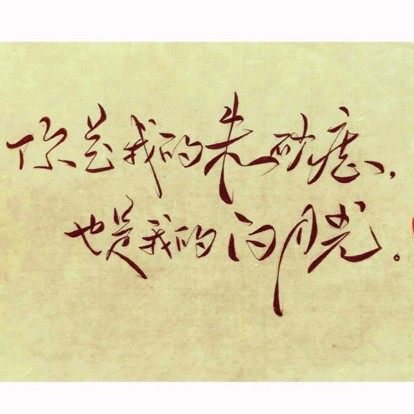 你是我的朱砂痣，
也是我的白月光。